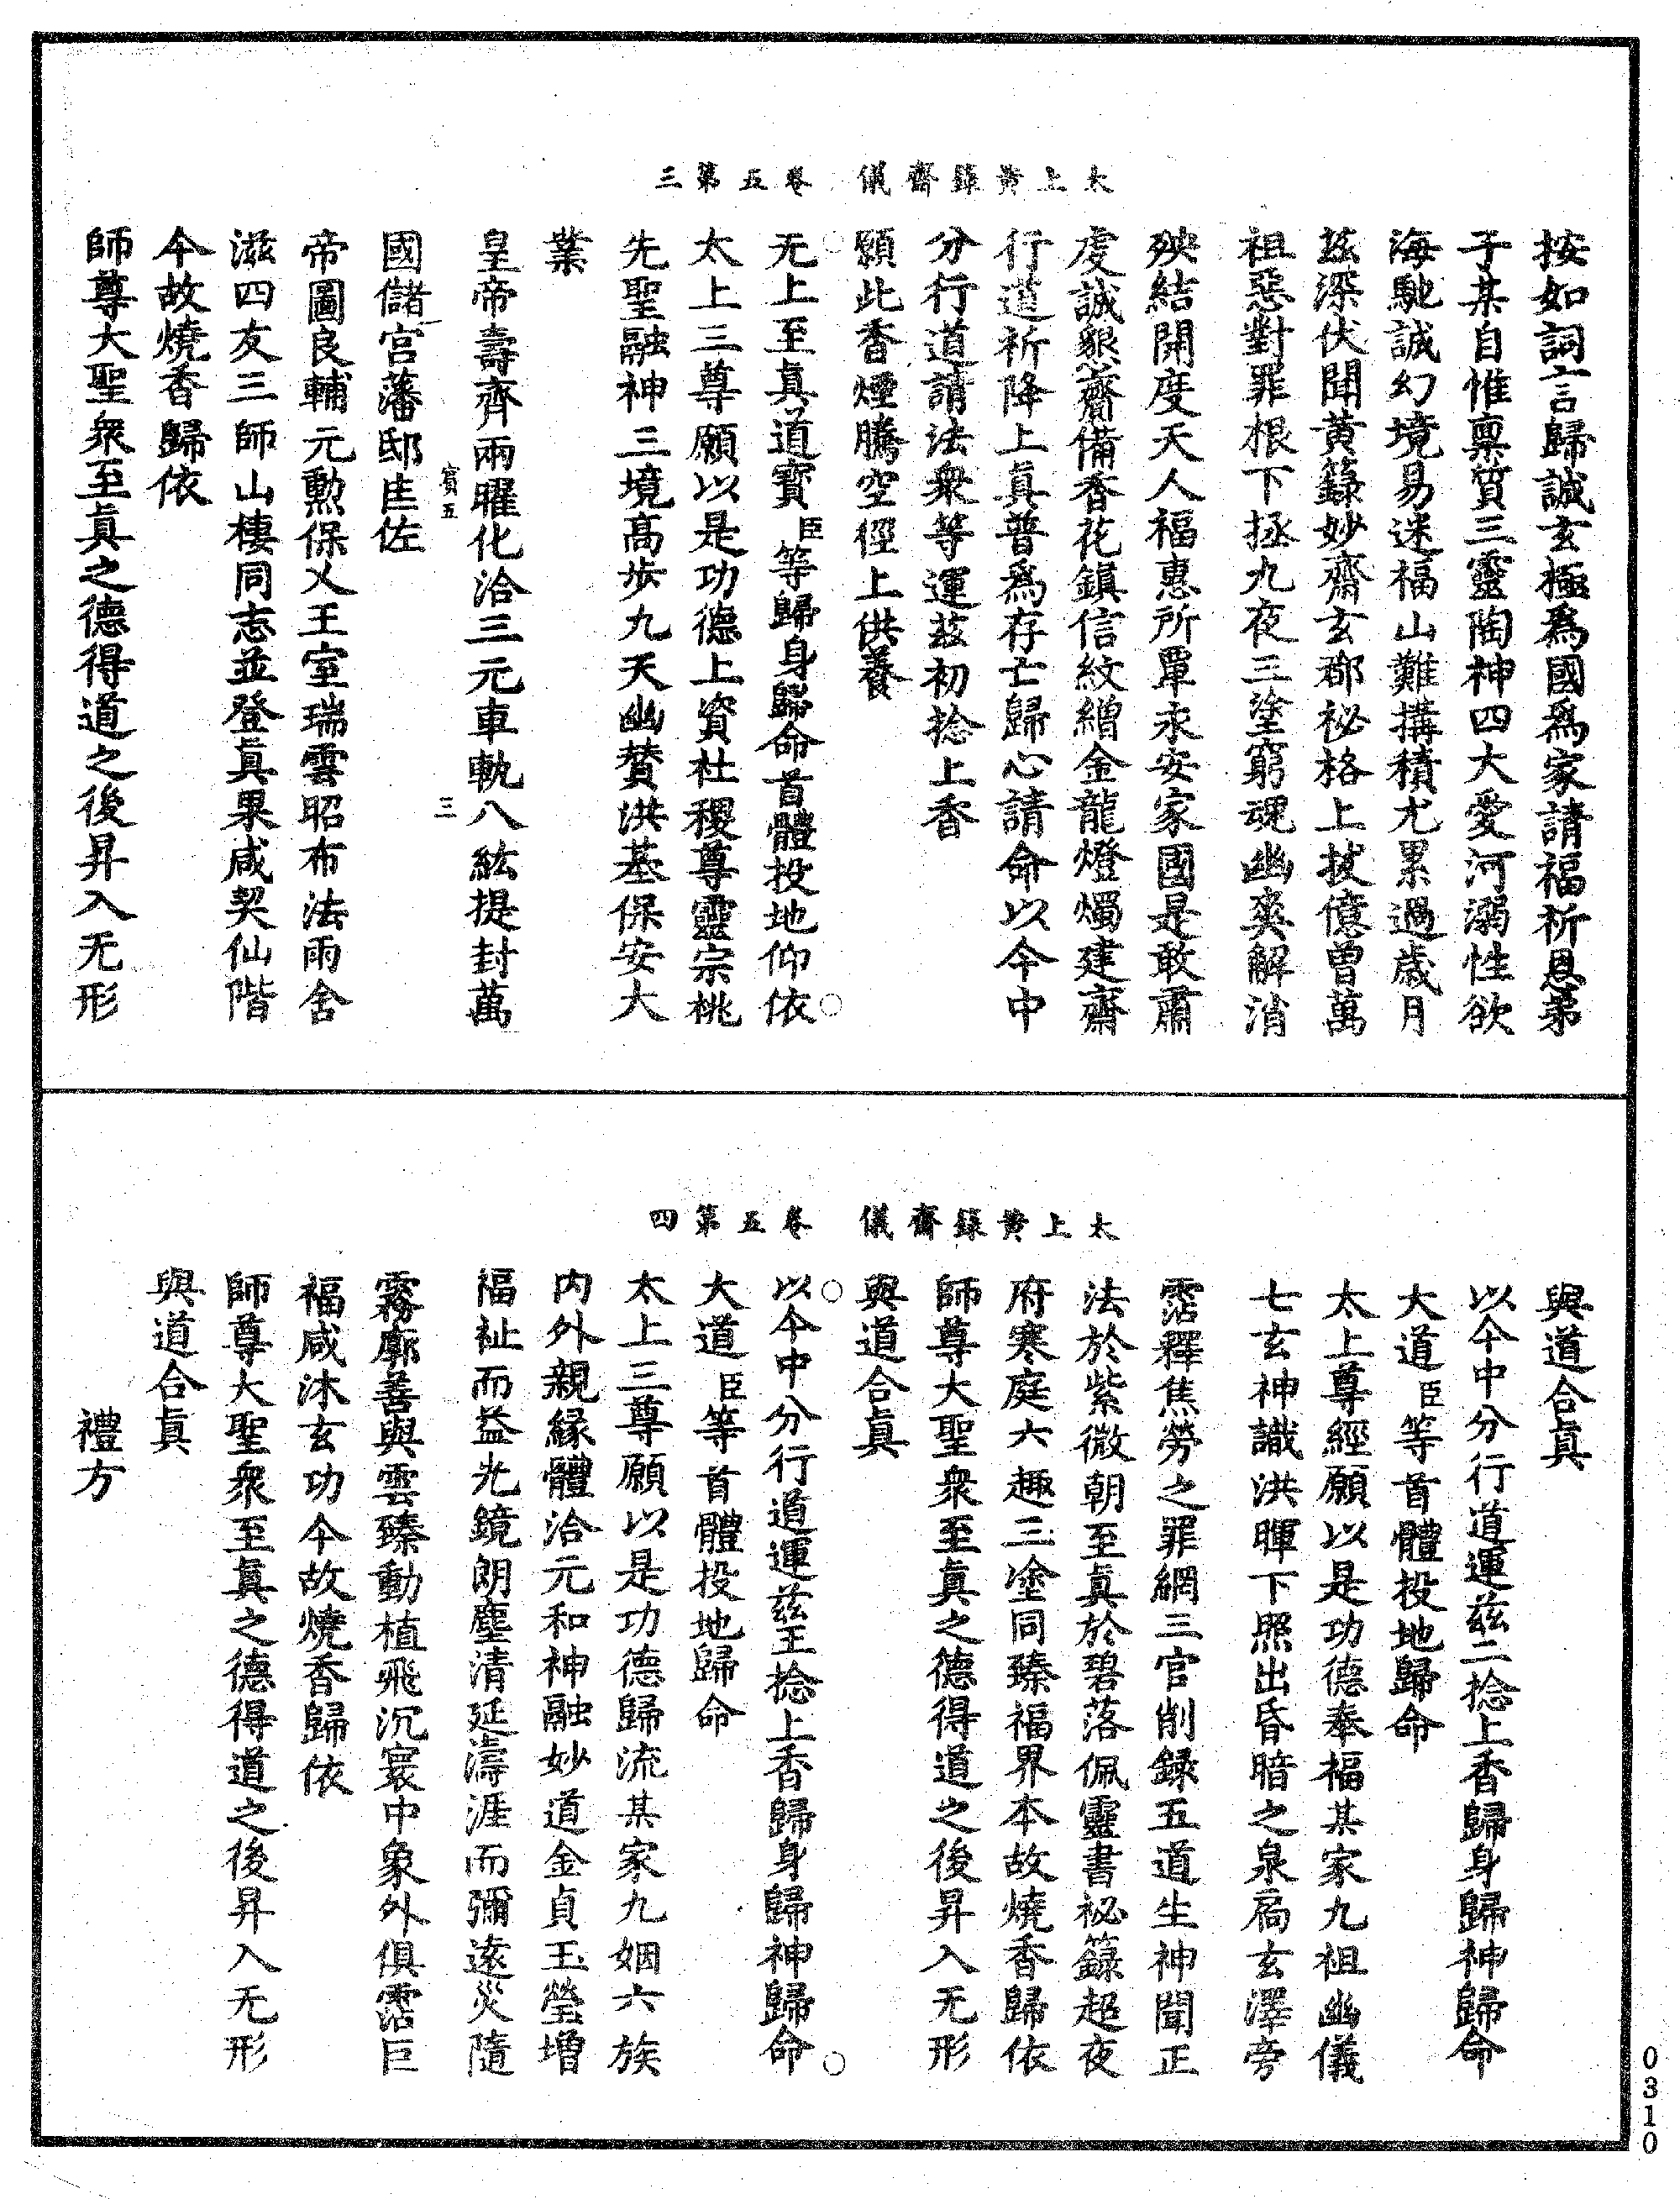 太上黃籙齋儀　卷五第三
按如詞言歸誠玄極爲國爲家請福祈恩弟
子某自惟禀質三靈陶神四大愛河溺性欲
海馳誠幻境易迷福山難搆積尤累過歲月
茲深伏聞黃籙妙齋玄都祕格上拔億曾萬
祖惡對罪根下拯九夜三塗窮魂幽爽解消
殃結開度天人福惠所覃永安家國是敢肅
虔誠懇齋備香花鎮信紋繒金龍燈燭建齋
行道祈降上眞普爲存亡歸心請命以今中
分行道請法衆等運茲初捻上香
願此香煙騰空徑上供養
无上至眞道寶臣等歸身歸命首體投地仰依
太上三尊願以是功德上資社稷尊靈宗桃
先聖融神三境高步九天幽贊洪基保安大
業
皇帝壽齊兩曜化洽三元車軌八紘提封萬
賓五　三
國儲宮藩邸匡佐
帝圖良輔元勳保乂王室瑞雲昭布法雨含
滋四友三師山棲同志並登眞果咸契仙階
今故燒香歸依
師尊大聖衆至眞之德得道之後昇入无形
太上黃籙齋儀　卷五第四
與道合眞
以今中分行道運茲二捻上香歸身歸神歸命
大道臣等首體投地歸命
太上尊經願以是功德奉福某家九祖幽儀
七玄神識洪暉下照出昏暗之泉扃玄澤旁
霑釋焦勞之罪網三官削録五道生神聞正
法於紫微朝至眞於碧落佩靈書祕籙超夜
府寒庭六趣三塗同臻福界本故燒香歸依
師尊大聖衆至眞之德得道之後昇入无形
與道合眞
以今中分行道運茲王捻上香歸身歸神歸命
大道臣等首體投地歸命
太上三尊願以是功德歸流某家九姻六族
内外親緣體洽元和神融妙道金貞玉瑩增
福祉而益光鏡朗塵清延濤涯而彌遠災隨
霧廓善與雲臻動植飛沉寰中象外俱霑巨
福咸沐玄功今故燒香歸依
師尊大聖衆至眞之德得道之後昇入无形
與道合眞
禮方
0310